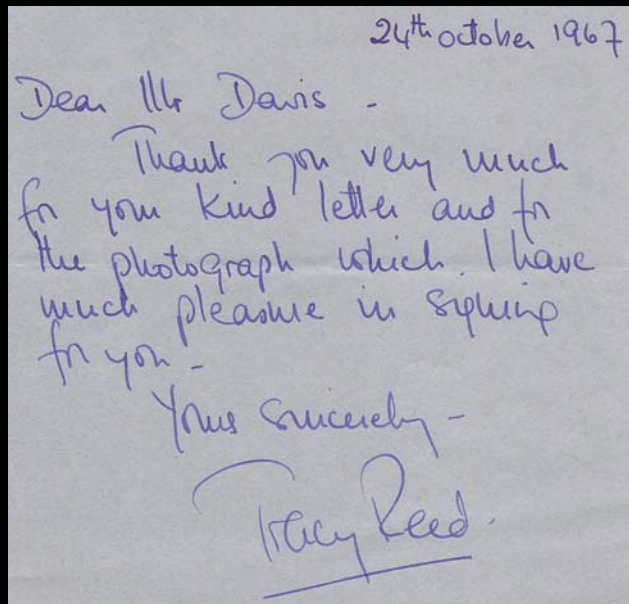 24th october 1967
Dear Mr Davis -
Thank you very much
for your kind letter and for
the photograph which I have
much pleasure in signing
for you -
Yours sincerely -
Tracy Reed.